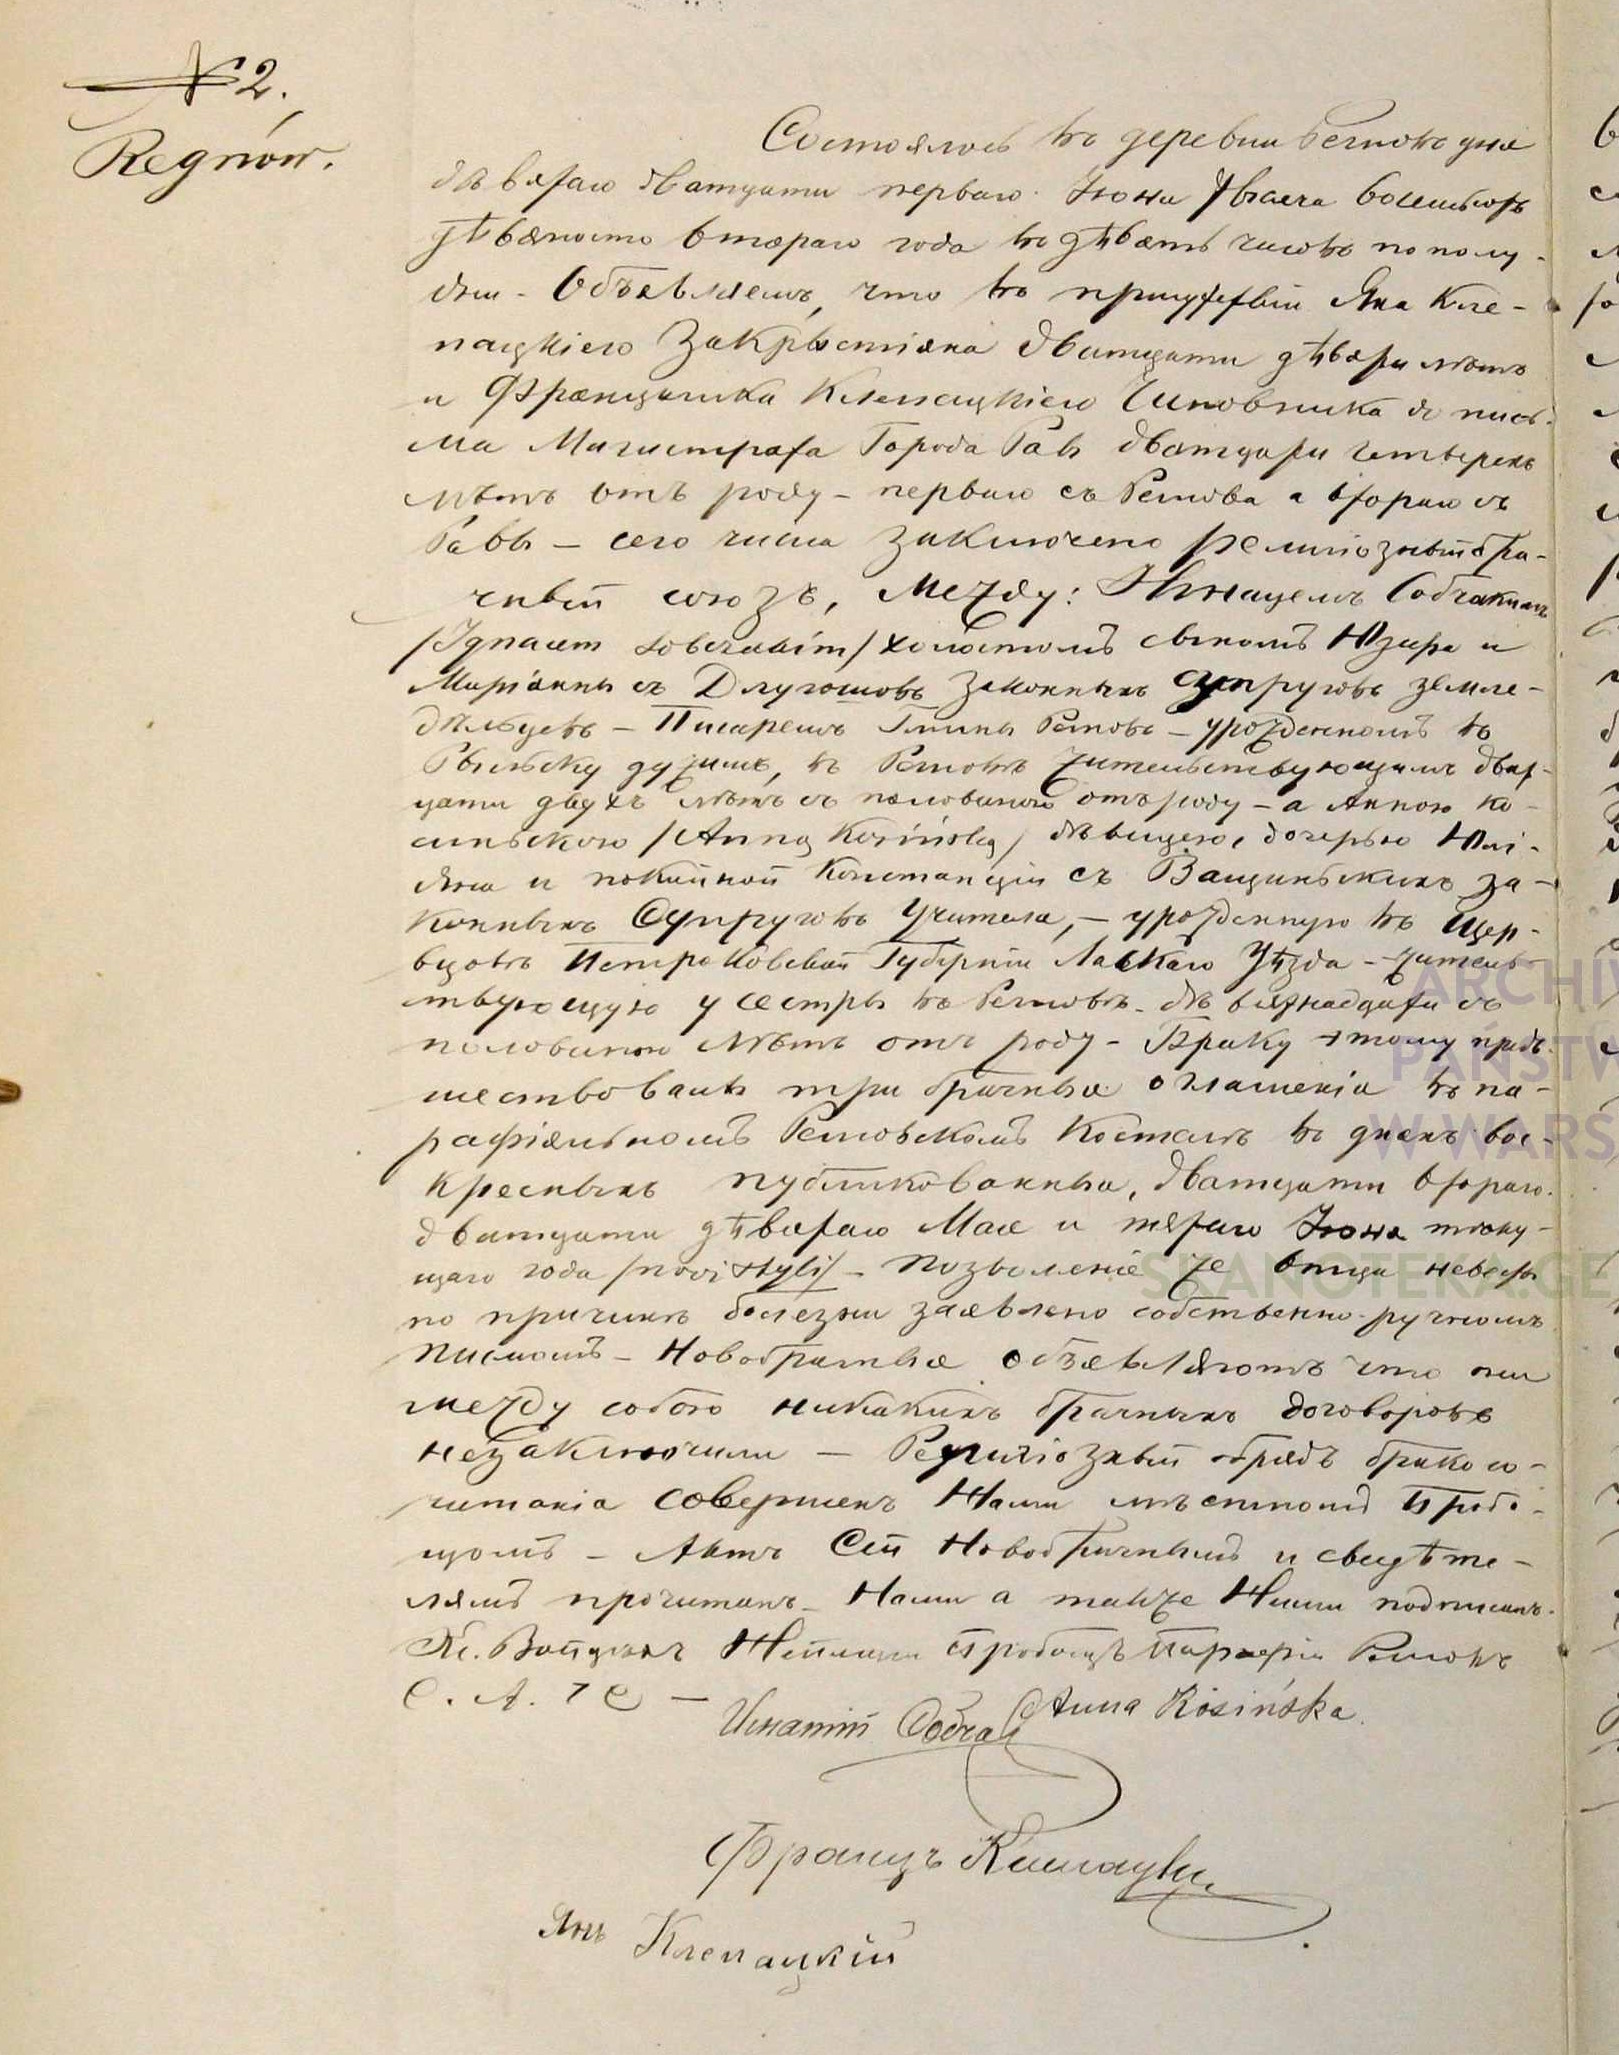 № 2.
Regnów.
Состоялось въ деревни Регновъ дня
дѣвятаго дватцати перваго Іюня тысяча восемьсотъ
дѣвяносто втораго года въ дѣвять часовъ по полу-
дни - Объявляемъ, что въ присутствіи Яна Кле-
пацкіего Закрыстіяна дватцати дѣвяти лѣтъ
и Францишка Клепацкіего Чиновника до пись-
ма Магистрата Города Равы дватцати четверехъ
лѣтъ отъ роду - перваго съ Регнова а втораго съ
Равы - сего числа заключено религіозный бра-
чный союзъ, между: Игнацемъ Собчакомъ
/Ignacem Sobczakiem/ холостымъ сыномъ Юзефа и
Маріанны съ Длугошовъ законныхъ супруговъ земле-
дѣльцевъ - Писаремъ Гмины Регновъ - урожденномъ въ
Рыльску дужимъ, въ Регновѣ жительствующимъ двад-
цати двухъ лѣтъ съ половиною отъ роду - а Анною Ко-
синьскою /Anną Kosińską/ дѣвицею, дочерью Юлі-
яна и покойной Констанціи съ Ващиньскихъ за-
конныхъ Супруговъ Учителя, - урожденную въ Щер-
цовѣ Петроковской Губерніи Ласкаго Уѣзда - житель-
твующую у сестры въ Регновѣ - дѣвятнадцати съ
половиною лѣтъ отъ роду - Браку этому предъ-
шествовали три брачные оглашенія въ па-
рафіяльномъ Регновскомъ Костелѣ въ дняхъ вос-
кресныхъ публикованныя, дватцати втораго
дватцати дѣвятаго Мая и пятаго Іюня теку-
щаго года /novi styli/ - Позволеніе же отца невесты
по причинѣ болезни заявлено собственно-ручнымъ
письмомъ - Новобрачные объявляютъ что они
между собою никакихъ брачныхъ договоровъ
незаключили - Религіозный обрядъ бракосо-
читанія совершенъ Нами мѣстномъ Пробо-
щомъ - Актъ Сей Новобрачнымъ и свидѣте-
лямъ прочитанъ - Нами а также Ними подписанъ.
Кс. Войцехъ Пробощъ Парафіи Регновъ
С. А. Г С -
Игнатій Собчак Anna Kosińska.
Францъ Клепацкій
Янъ Клепацкій